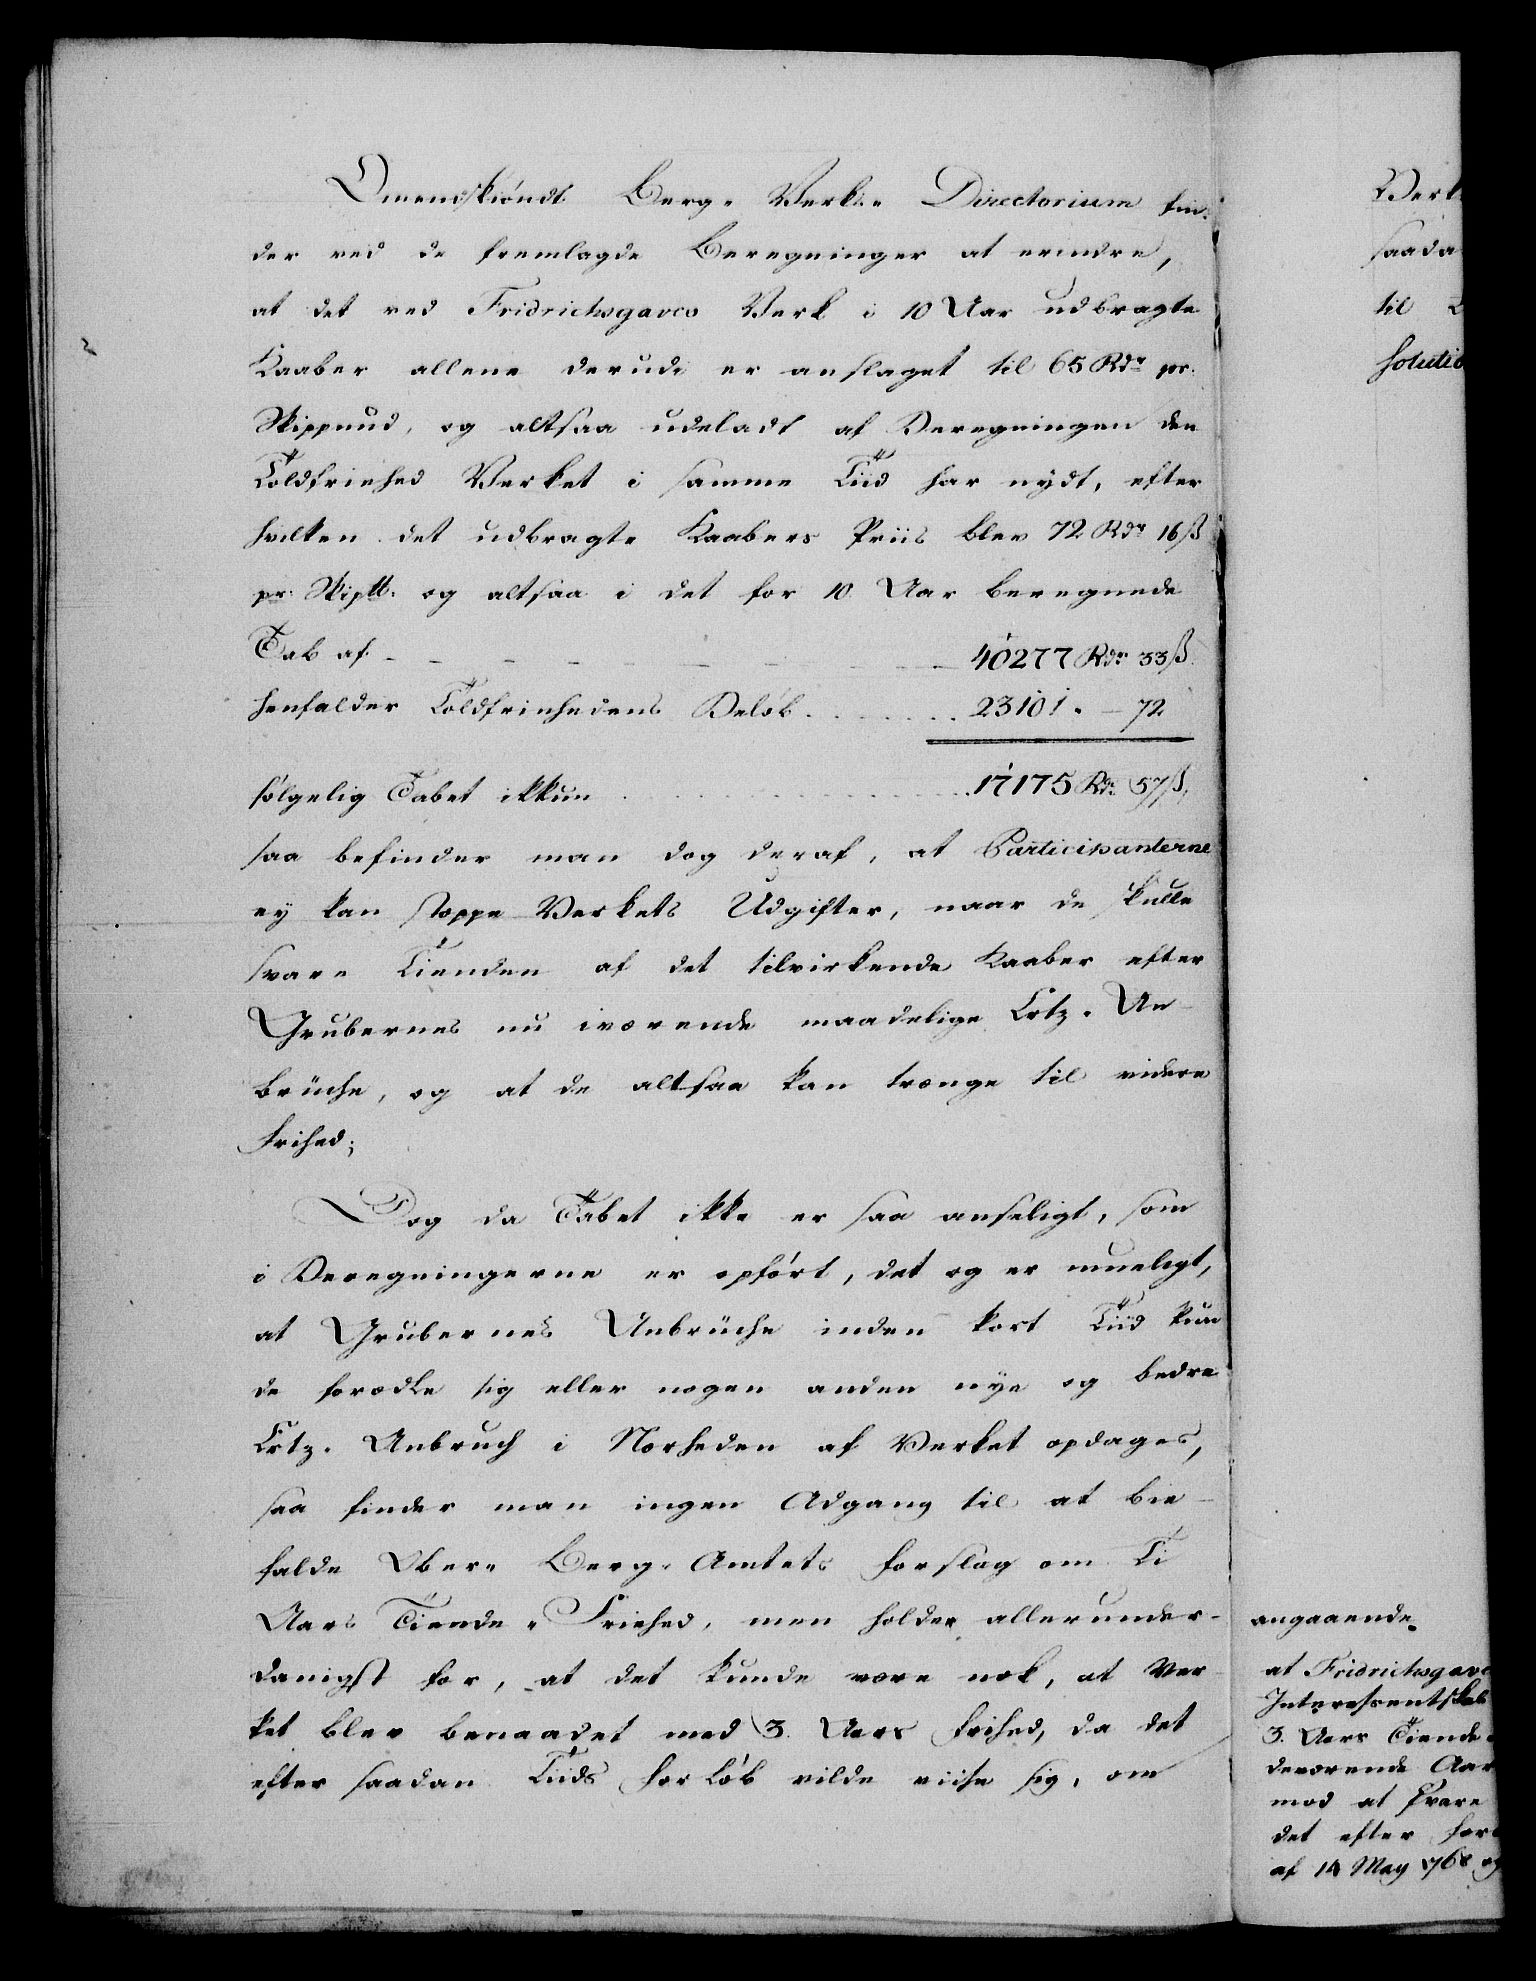 Omendskiöndt Berg- Verks- Directorium fin-
der ved de fremlagde Beregninger at erindre,
at det ved Fridrichsgaves Verk i 10 Aar udbragte
Kaaber allene derudi er anslaget til 65 Rdr pr.
Skippund, og altsaa udeladt af Beregningen den
Toldfriehed Verket i samme Tiid har nydt, efter
hvilken det udbragte Kaabers Priis blev 72 Rdr 16 ß
pr: Skip℔: og altsaa i det for 10 Aar beregnede
Tab af - - - - - - - - 40277 Rdr 33 ß.
henfalder Toldfriehedens Beløb . . . . . . . 23101 - - 72
følgelig Tabet ikkun . . . . . . . . 17175 Rdr 57 ß,
saa befinder man dog deraf, at Participanterne
ey kan stoppe Verkets Udgifter, naar de skulle
svare Tienden af det tilvirkende Kaaber efter
Grubernes nu iværende maadelige Ertz- An-
brüche, og at de altsaa kan trænge til videre
Frihed;
Dog da Tabet ikke er saa anseligt, som
i Beregningerne er opført, det og er mueligt,
at Grubernes Anbrüche inden kort Tiid kun-
de forædle sig eller nogen anden nye og bedre
Ertz- Anbruch i Nærheden af Verket opdages,
saa finder man ingen Adgang til at bie-
falde Ober- Berg- Amtets Forslag om Ti
Aars Tiende- Friehed, men holder allerunder-
danigst for, at det kunde være nok, at Ver-
ket blev benaadet med 3. Aars Frihed, da det
efter saadan Tiids Forløb vilde viise sig, om
Verk
saada
til
solutio
angaaende
at Fridrichsgave
Interessentskab
3. Aars Tiende
deværende Aar
mod at svare
det efter For
af 14 May 1768 og